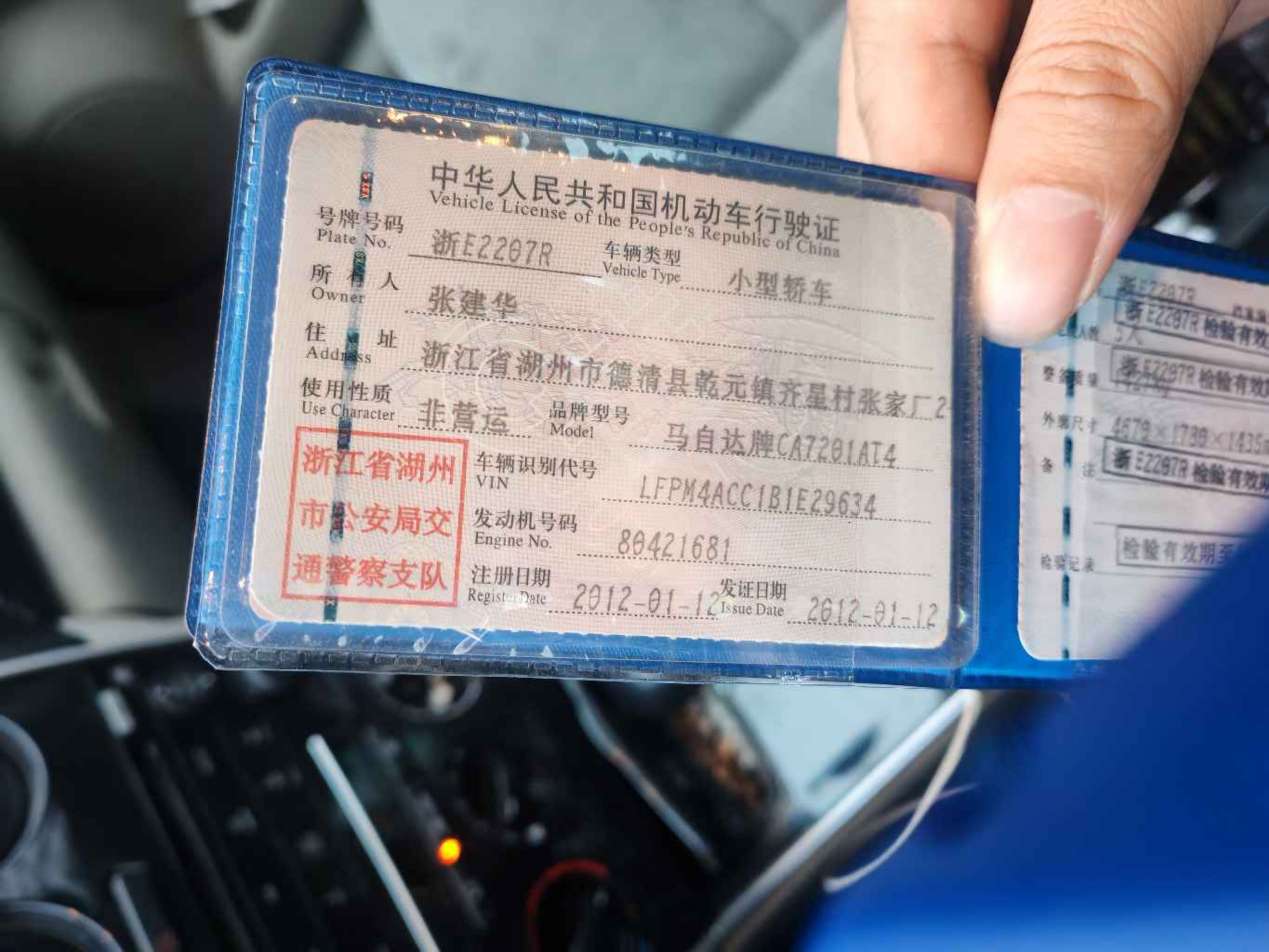 中华人民共和国机动车行驶证
Vehicle License of the People's Republic of China
号牌号码 浙E2207R 车辆类型 小型轿车
Plate No. Vehicle Type
所有人 张建华
Owner
住址 浙江省湖州市德清县乾元镇齐星村张家厂2
Address
使用性质 非营运 品牌型号 马自达牌CA7201AT4
Use Character Model
浙江省湖州
市公安局交
通警察支队
车辆识别代号 LFPM4ACC1B1E29634
VIN
发动机号码 80421681
Engine No.
注册日期 2012-01-12 发证日期 2012-01-12
Register Date Issue Date
浙E2207R
浙E2207R 检验有效
5人
浙E2207R 检验有效期
外廓尺寸 4670×1780×1435m
备注 浙E2207R 检验有效期
检验有效期至
检验记录